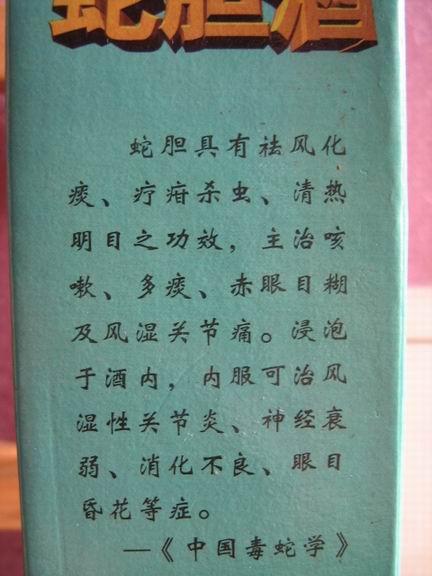 蛇胆酒
蛇胆具有祛风化
痰、疗疳杀虫、清热
明目之功效，主治咳
嗽、多痰、赤眼目糊
及风湿关节痛。浸泡
于酒内，内服可治风
湿性关节炎、神经衰
弱、消化不良、眼目
昏花等症。
—《中国毒蛇学》